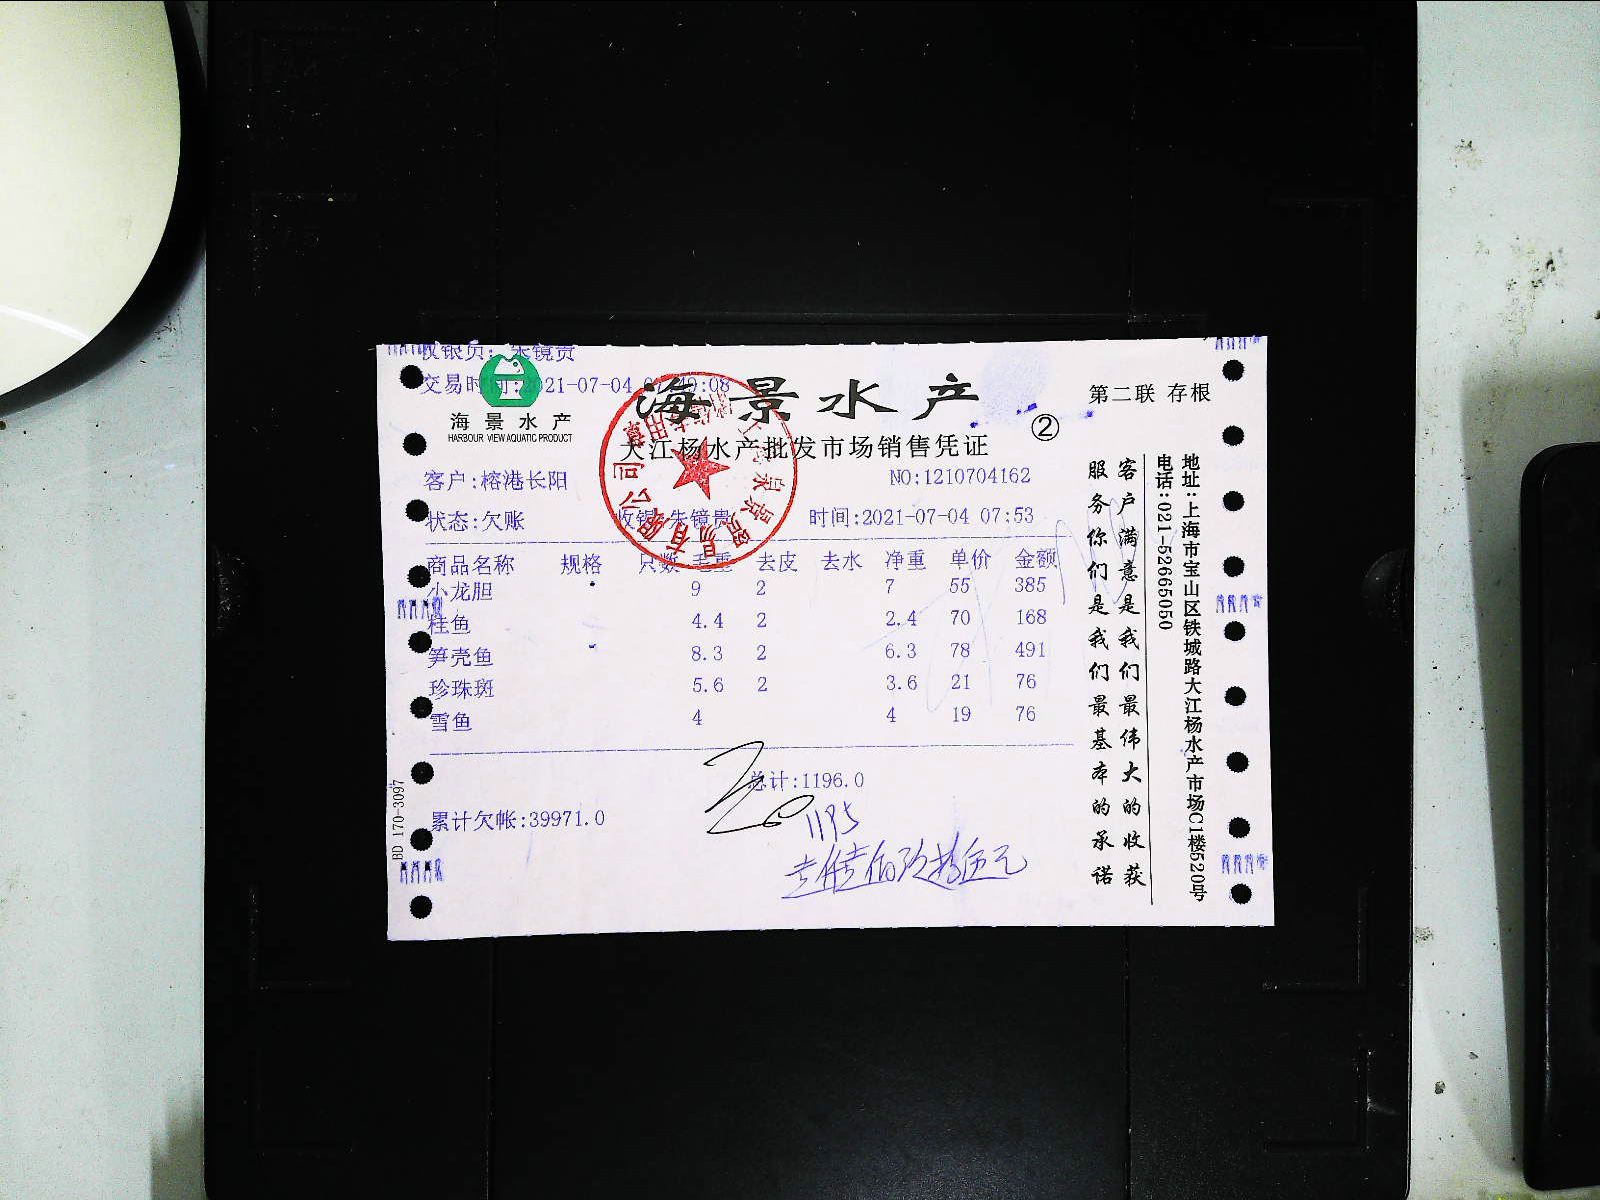 收银员: 朱镜贵
交易时间:2021-07-04 07:49:08
海景水产
HARBOUR VIEW AQUATIC PRODUCT
海景水产
大江杨水产批发市场销售凭证
②
第二联 存根
客户:榕港长阳
NO:1210704162
状态:欠账
收银:朱镜贵
时间:2021-07-04 07:53
商品名称 规格 只数 毛重 去皮 去水 净重 单价 金额
小龙胆 9 2 7 55 385
桂鱼 4.4 2 2.4 70 168
笋壳鱼 8.3 2 6.3 78 491
珍珠斑 5.6 2 3.6 21 76
雪鱼 4 4 19 76
总计:1196.0
累计欠帐:39971.0
1195
BD 170-3097
客户满意是我们最伟大的收获
服务你们是我们最基本的承诺
地址:上海市宝山区铁城路大江杨水产市场C1楼520号
电话:021-52665050